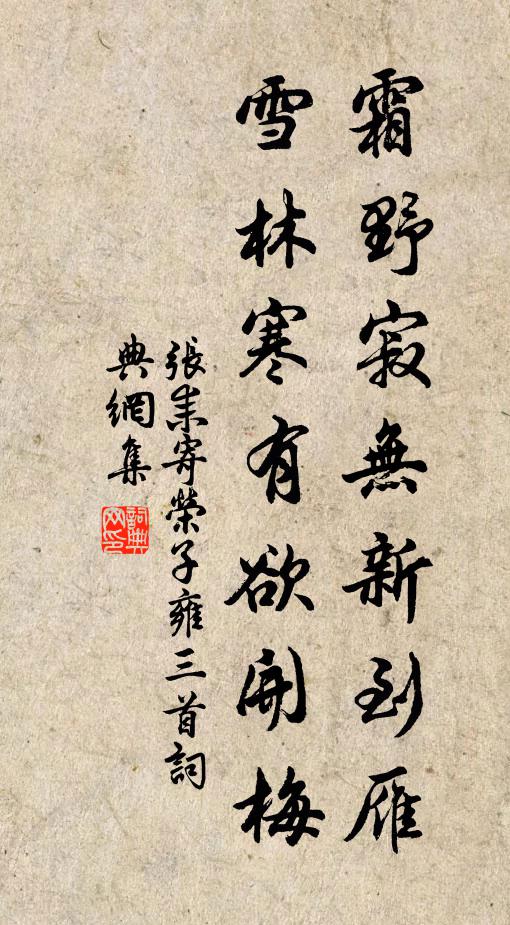 霜野寂無新到雁
雪林寒有欲開梅
張耒寄榮子雍三首詞
典網集
詞典網印